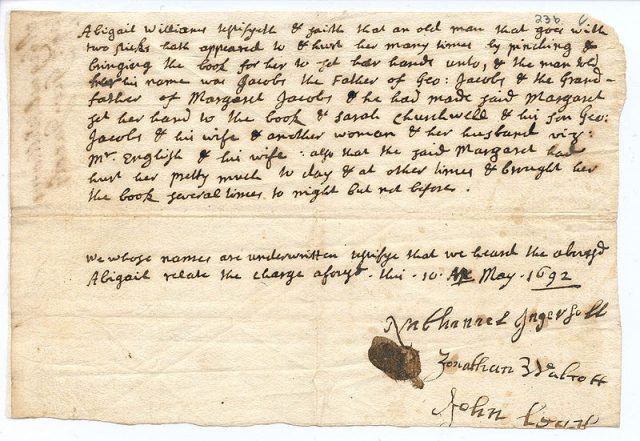 236
Abigail Williams testifyeth & saith that an old man that goes with
two sticks hath appeared to & hurt her many times by pinching &
bringing the book for her to set her hand unto, & the man told
her his name was Jacobs the Father of Geo: Jacobs & the Grand-
father of Margaret Jacobs & he had made said Margaret
set her hand to the book & Sarah Churchwell & his son Geo:
Jacobs & his wife & another woman & her husband viz:
Mr. English & his wife: also that the said Margaret had
hurt her pretty much to day & at other times & brought her
the book several times to night but not before.
We whose names are underwritten testifye that we heard the abovesd
Abigail relate the charge aforesd. this 10. May. 1692
Nathanel Ingersoll
Jonathan Walcott
John